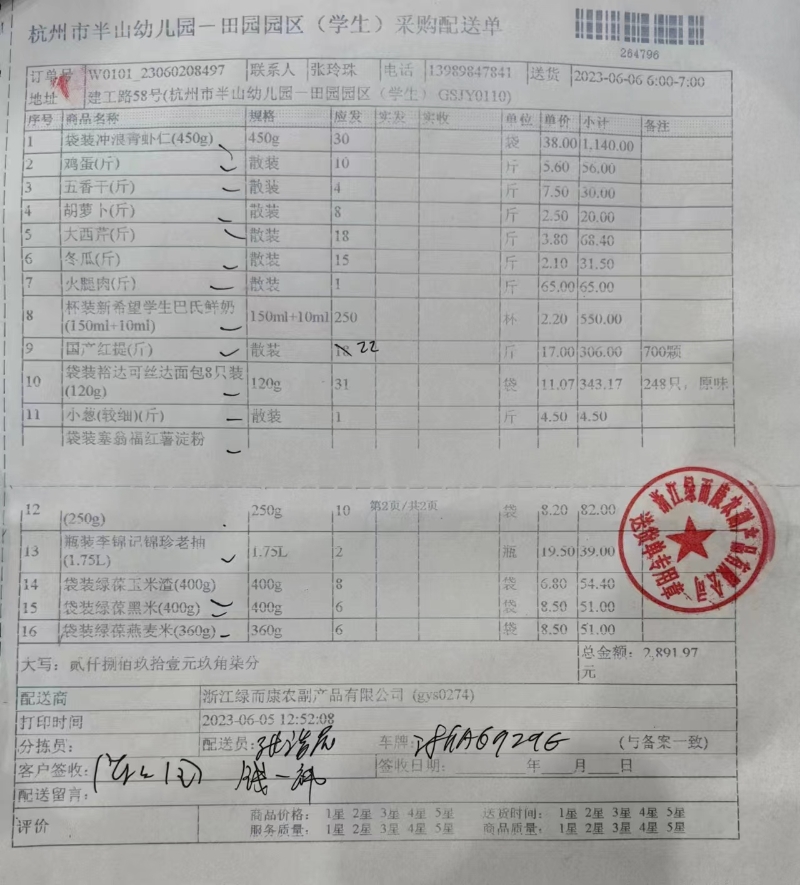 杭州市半山幼儿园－田园园区（学生）采购配送单
264796
订单号 W0101_23060208497 联系人 张玲珠 电话 13989847841 送货 2023-06-06 6:00-7:00
地址 建工路58号(杭州市半山幼儿园－田园园区（学生）GSJY0110)
序号 商品名称 规格 应发 实发 实收 单位 单价 小计 备注
1 袋装冲浪青虾仁(450g) 450g 30 袋 38.00 1,140.00
2 鸡蛋(斤) 散装 10 斤 5.60 56.00
3 五香干(斤) 散装 4 斤 7.50 30.00
4 胡萝卜(斤) 散装 8 斤 2.50 20.00
5 大西芹(斤) 散装 18 斤 3.80 68.40
6 冬瓜(斤) 散装 15 斤 2.10 31.50
7 火腿肉(斤) 散装 1 斤 65.00 65.00
8 杯装新希望学生巴氏鲜奶(150ml+10ml) 150ml+10ml 250 杯 2.20 550.00
9 国产红提(斤) 散装 18 22 斤 17.00 306.00 700颗
10 袋装裕达可丝达面包8只装(120g) 120g 31 袋 11.07 343.17 248只，原味
11 小葱(较细)(斤) 散装 1 斤 4.50 4.50
袋装塞翁福红薯淀粉
第2页/共2页
12 (250g) 250g 10 袋 8.20 82.00
13 瓶装李锦记锦珍老抽(1.75L) 1.75L 2 瓶 19.50 39.00
14 袋装绿葆玉米渣(400g) 400g 8 袋 6.80 54.40
15 袋装绿葆黑米(400g) 400g 6 袋 8.50 51.00
16 袋装绿葆燕麦米(360g) 360g 6 袋 8.50 51.00
浙江绿而康农副产品有限公司
送货单专用章
大写：贰仟捌佰玖拾壹元玖角柒分 总金额：2,891.97元
配送商 浙江绿而康农副产品有限公司 (gys0274)
打印时间 2023-06-05 12:52:08
分拣员： 配送员： 车牌： （与备案一致）
客户签收： 签收日期：____年____月____日
配送留言：
评价 商品价格： 1星 2星 3星 4星 5星 送货时间： 1星 2星 3星 4星 5星
服务质量： 1星 2星 3星 4星 5星 商品质量： 1星 2星 3星 4星 5星